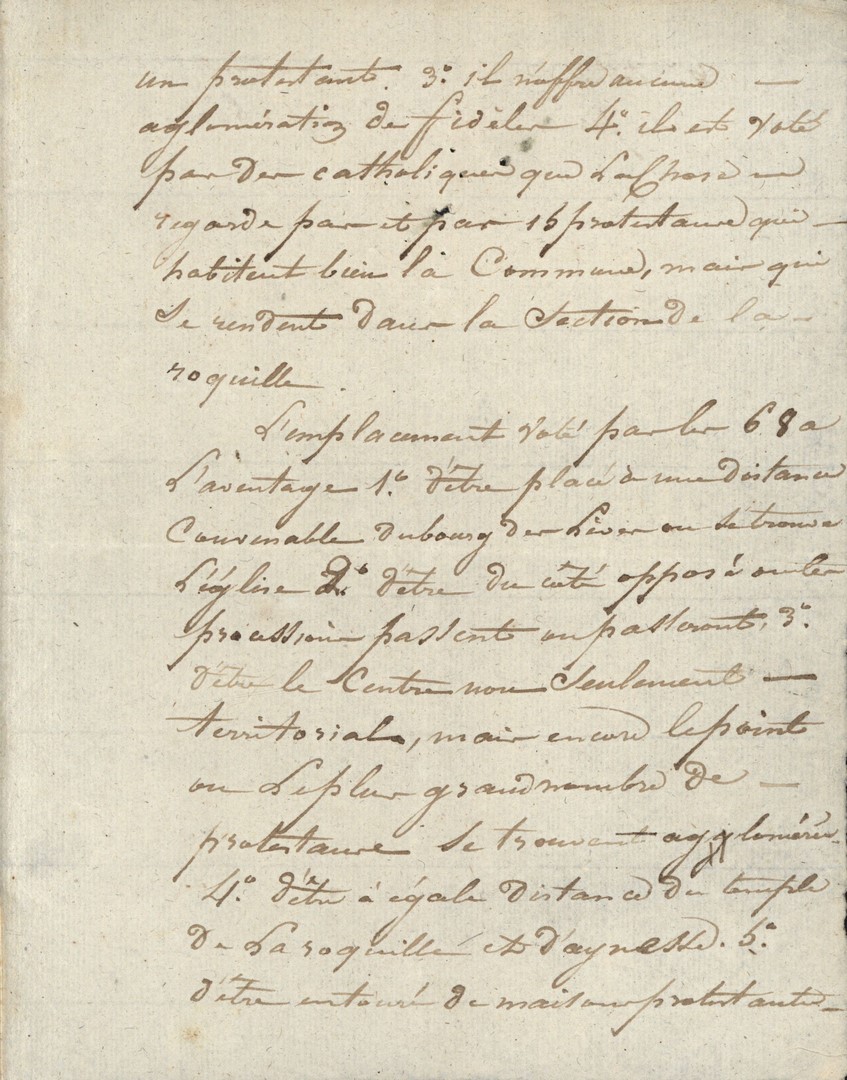 un protestant. 3.° il n'offre aucune —
aglomération de fidèles 4.° il est voté
par des catholiques que la chose ne
regarde pas et par 16 protestans qui —
habitent bien la Commune, mais qui
se rendent dans la Section de la —
roquille.
L'emplacement voté par les 68 a
L'aventage 1.° d'être placé à une distance
Convenable du bourg des Lèves ou se trouve
L'église 2.° d'être du côté opposé ou les
processions passent ou passeront, 3.°
d'être le Centre non Seulement —
territorial, mais encore le point
ou Le plus grand nombre de —
protestans se trouvent agglomérés.
4.° d'être à égale distance du temple
De La roquille et D'aynesse. 5.°
d'être entouré de maisons protestantes —